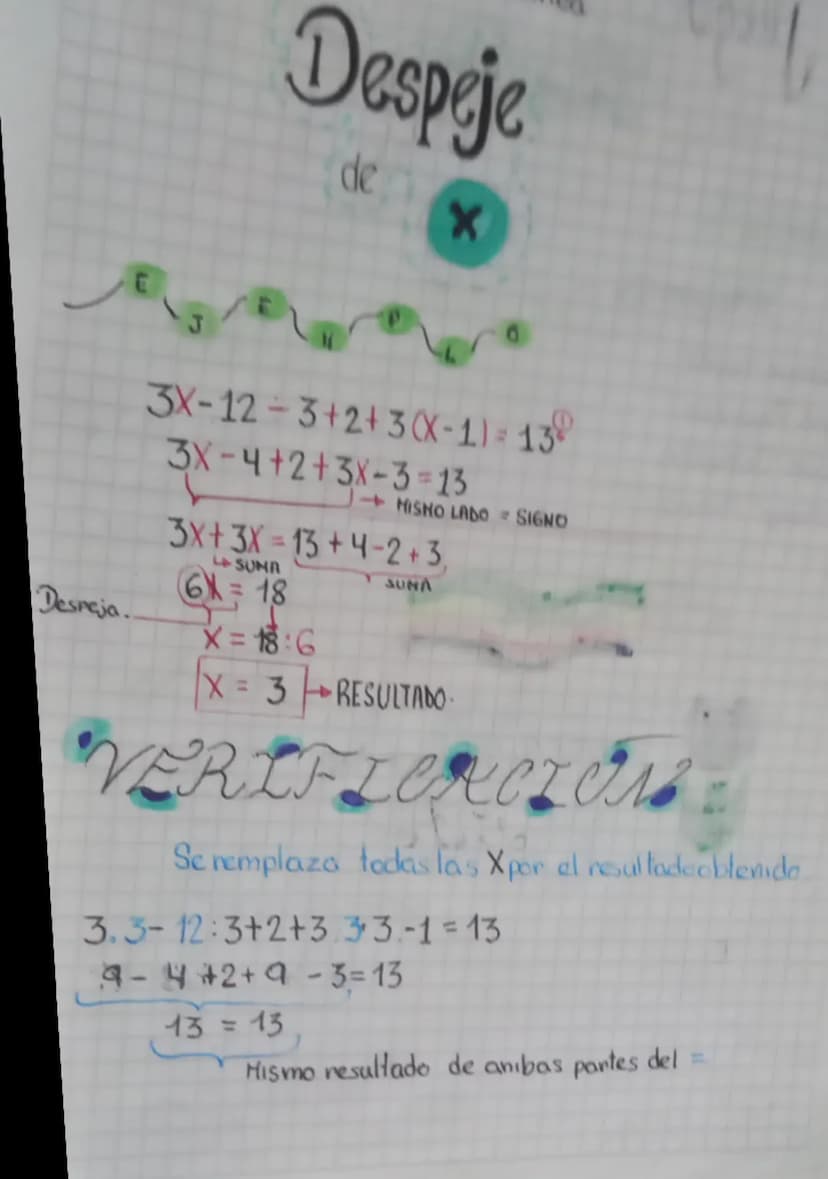 Despeje
de
X
EJEMPLO
3X-12÷3+2+3(X-1)=13
3X-4+2+3X-3=13
→ MISMO LADO = SIGNO
3X+3X=13+4-2+3
↳SUMA
SUMA
6X=18
Despeja.
X=18:6
X = 3 → RESULTADO.
VERIFICACIÓN
Se remplaza todas las X por el resultado obtenido
3.3-12:3+2+3.3,3.-1=13
9-4+2+9-3=13
13=13
Mismo resultado de ambas partes del =